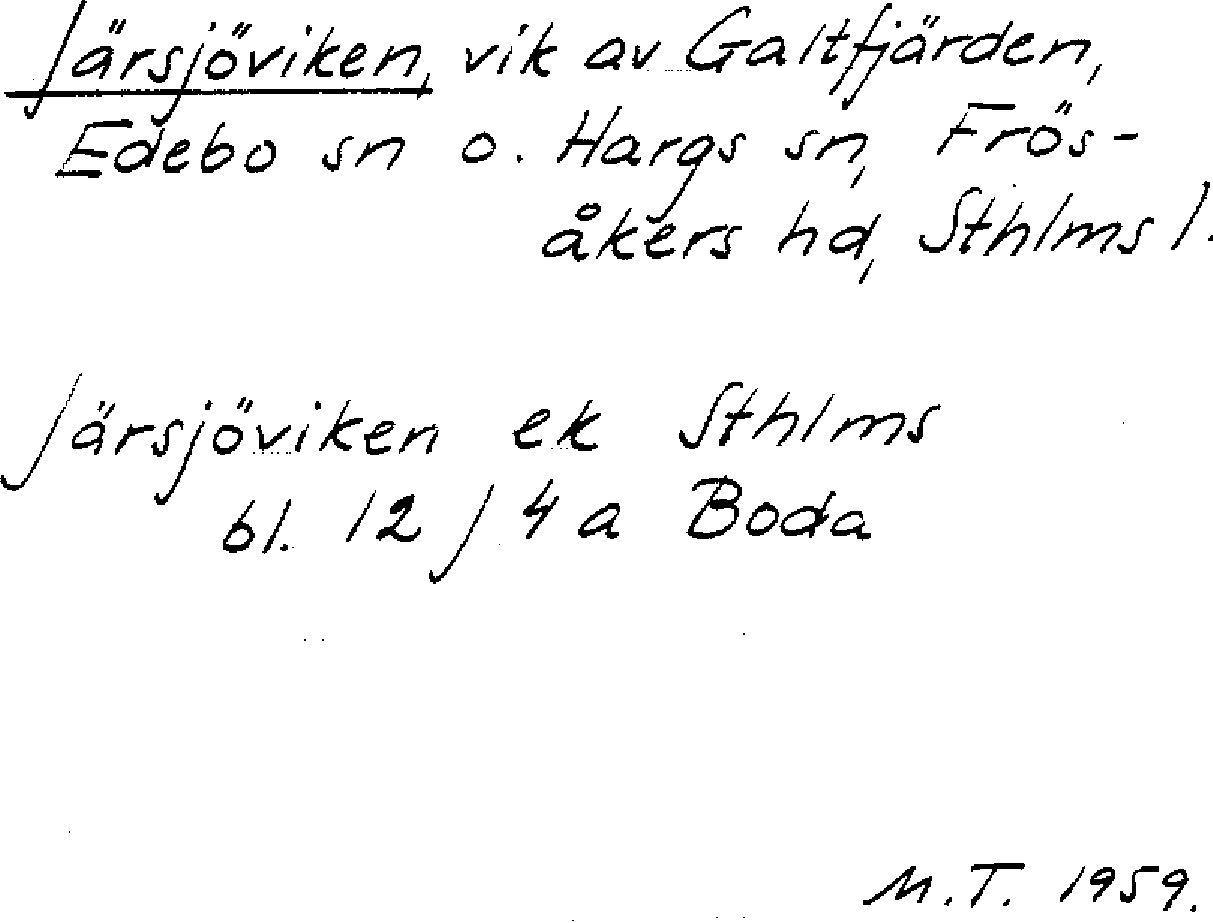 Järsjöviken, vik av Galtfjärden,
Edebo sn o. Hargs sn, Frös-
åkers hd, Sthlms l.
Järsjöviken ek Sthlms
bl. 12 J 4 a Boda
M.T. 1959.